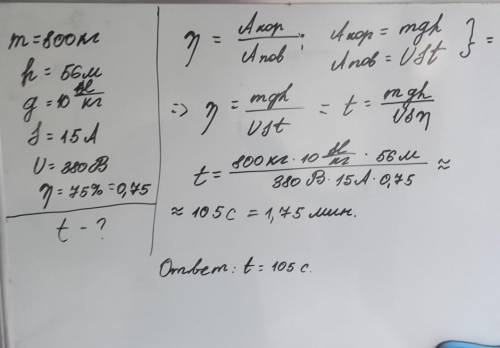 m = 800 кг
h = 56 м
g = 10 Н/кг
I = 15 А
U = 380 В
η = 75% = 0,75
t - ?
η = Aкор / Aпов ; Aкор = mgh
Aпов = UIt } =
=> η = mgh / UIt = t = mgh / UIη
t = 800 кг · 10 Н/кг · 56 м / 380 В · 15 А · 0,75 ≈
≈ 105 с = 1,75 мин.
Ответ: t = 105 с.